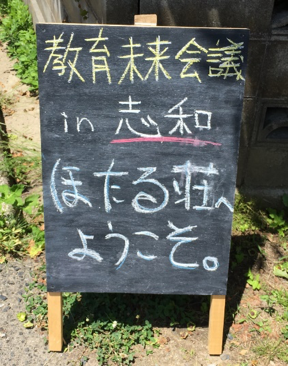 教育未来会議
in 志和
ほたる荘へ
ようこそ。